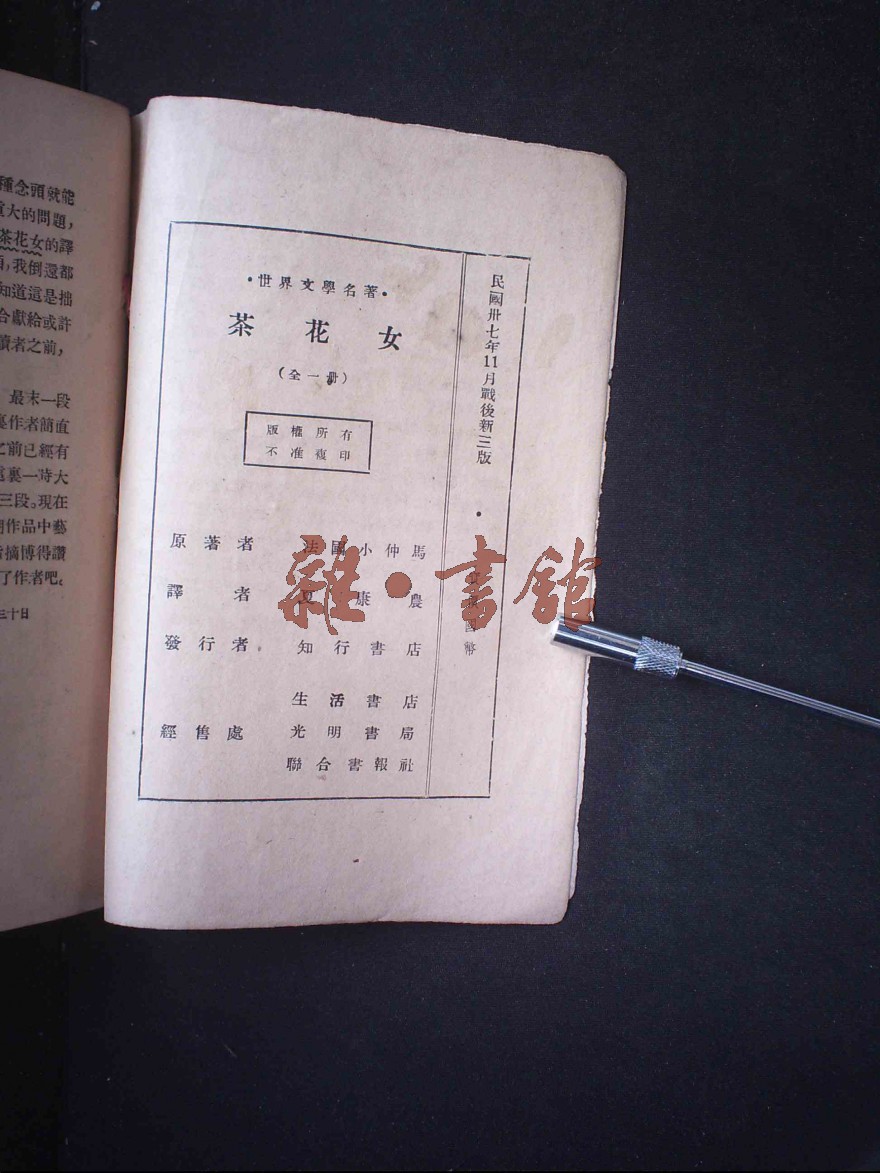 種念頭就能
重大的問題,
茶花女的譯
我倒還都
知道這是拙
合獻給或許
讀者之前,
最末一段
作者簡直
之前已經有
裏一時大
三段。現在
作品中藝
摘博得讚
了作者吧。
三十日
•世界文學名著•
茶花女
(全一册)
版權所有
不准複印
原著者 法國小仲馬
譯者 夏康農
發行者 知行書店
生活書店
經售處 光明書局
聯合書報社
民國卅七年11月戰後新三版
國幣
雜•書館